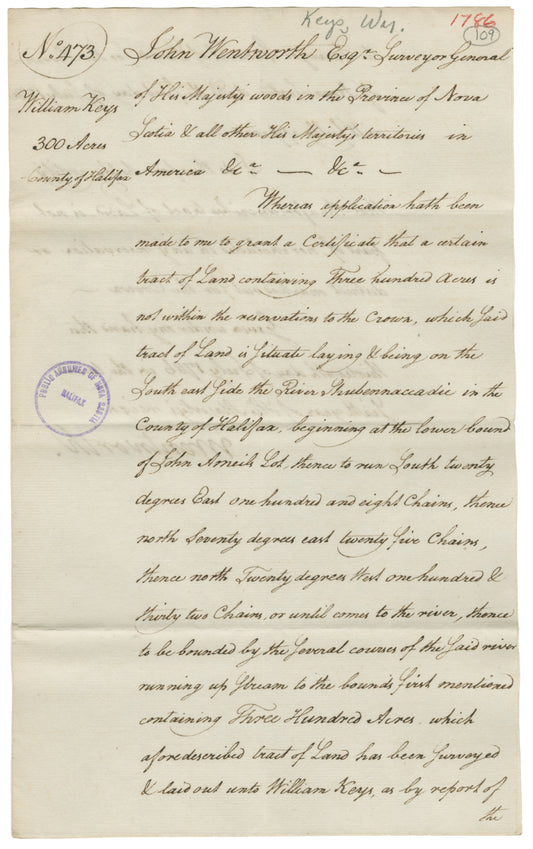 Keys, Wm.
1786
109
No. 473.
William Keys
300 Acres
County of Halifax
John Wentworth Esqr. Surveyor General
of His Majestys woods in the Province of Nova
Scotia & all other His Majestys territories in
America &ca — &ca —
Whereas application hath been
made to me to grant a Certificate that a certain
tract of Land containing Three hundred Acres is
not within the reservations to the Crown, which said
tract of Land is situate laying & being on the
South east side the River Shubennaccadie in the
County of Halifax, beginning at the lower bound
of John Ameils Lot, thence to run South twenty
degrees East one hundred and eight Chains, thence
north Seventy degrees east twenty five Chains,
thence north Twenty degrees West one hundred &
thirty two Chains, or until comes to the river, thence
to be bounded by the several courses of the said river
running up stream to the bounds first mentioned
containing Three Hundred Acres. which
aforedescribed tract of Land has been surveyed
& laid out unto William Keys, as by report of
the
PUBLIC ARCHIVES OF NOVA SCOTIA
HALIFAX